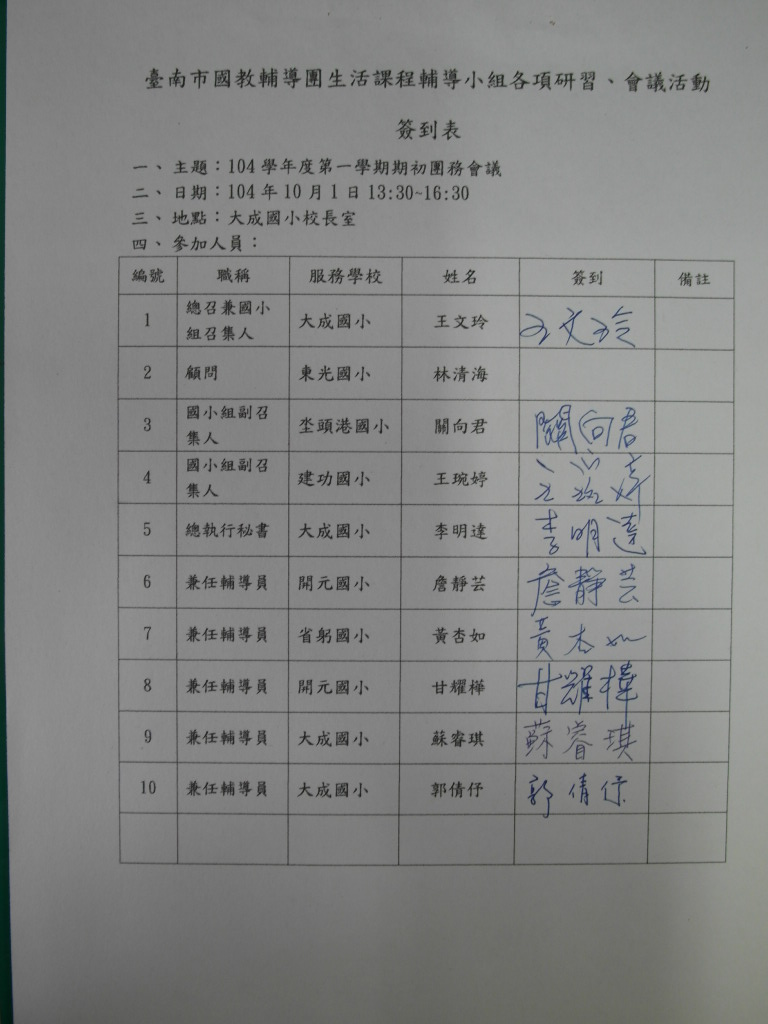 臺南市國教輔導團生活課程輔導小組各項研習、會議活動
簽到表
一、主題：104 學年度第一學期期初團務會議
二、日期：104 年 10 月 1 日 13:30~16:30
三、地點：大成國小校長室
四、參加人員：
編號 職稱 服務學校 姓名 簽到 備註
1 總召兼國小組召集人 大成國小 王文玲 王文玲
2 顧問 東光國小 林清海
3 國小組副召集人 坔頭港國小 關向君 關向君
4 國小組副召集人 建功國小 王琬婷 王琬婷
5 總執行秘書 大成國小 李明達 李明達
6 兼任輔導員 開元國小 詹靜芸 詹靜芸
7 兼任輔導員 省躬國小 黃杏如 黃杏如
8 兼任輔導員 開元國小 甘耀樺 甘耀樺
9 兼任輔導員 大成國小 蘇睿琪 蘇睿琪
10 兼任輔導員 大成國小 郭倩伃 郭倩伃